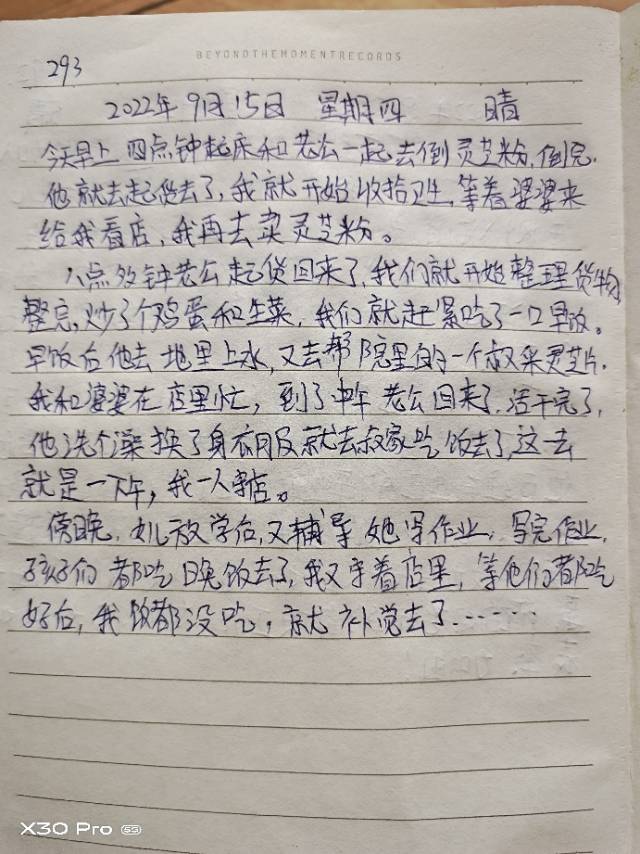 BEYONDTHEMOMENTRECORDS
293
2022年9月15日 星期四 晴
今天早上四点钟起床和老公一起去倒灵芝粉,倒完.
他就去起货去了,我就开始收拾卫生,等着婆婆来
给我看店,我再去卖灵芝粉。
八点多钟老公起货回来了,我们就开始整理货物
整完,炒了个鸡蛋和生菜,我们就赶紧吃了一口早饭。
早饭后他去地里上水,又去帮院里的一个叔采灵芝片.
我和婆婆在店里忙,到了中午老公回来了,活干完了,
他洗个澡换了身衣服就去叔家吃饭去了,这一去
就是一下午,我一人守店。
傍晚,女儿放学后,又辅导她写作业,写完作业,
孩子们都吃晚饭去了,我又守着店里,等他们都吃
好后,我饭都没吃,就补觉去了......
X30 Pro 5G